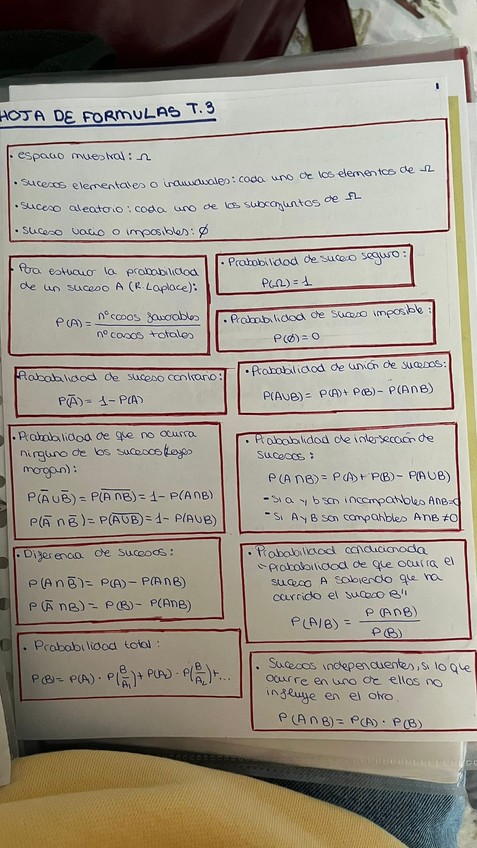 1
HOJA DE FORMULAS T.3
• espacio muestral: Ω
• sucesos elementales o individuales: cada uno de los elementos de Ω
• suceso aleatorio: cada uno de los subconjuntos de Ω
• suceso vacio o imposibles: ∅
• Para estudiar la probabilidad
de un suceso A (R. Laplace):
P(A) = nº casos favorables / nº casos totales
• Probabilidad de suceso seguro:
P(Ω) = 1
• Probabilidad de suceso imposible:
P(∅) = 0
Probabilidad de suceso contrario:
P(A̅) = 1 - P(A)
• Probabilidad de unión de sucesos:
P(A∪B) = P(A) + P(B) - P(A∩B)
• Probabilidad de que no ocurra
ninguno de los sucesos (leyes
morgan):
P(A̅ ∪ B̅) = P(A̅∩̅B̅) = 1 - P(A∩B)
P(A̅ ∩ B̅) = P(A̅∪̅B̅) = 1 - P(A∪B)
• Probabilidad de intersección de
sucesos:
P(A∩B) = P(A) + P(B) - P(A∪B)
- Si a y b son incompatibles A∩B=0
- Si A y B son compatibles A∩B ≠ 0
• Diferencia de sucesos:
P(A∩B̅) = P(A) - P(A∩B)
P(A̅∩B) = P(B) - P(A∩B)
• Probabilidad condicionada
"Probabilidad de que ocurra el
suceso A sabiendo que ha
ocurrido el suceso B"
P(A/B) = P(A∩B) / P(B)
• Probabilidad total:
P(B) = P(A) · P(B/A₁) + P(A₂) · P(B/A₂) + ...
• Sucesos independientes, si lo que
ocurre en uno de ellos no
influye en el otro.
P(A∩B) = P(A) · P(B)